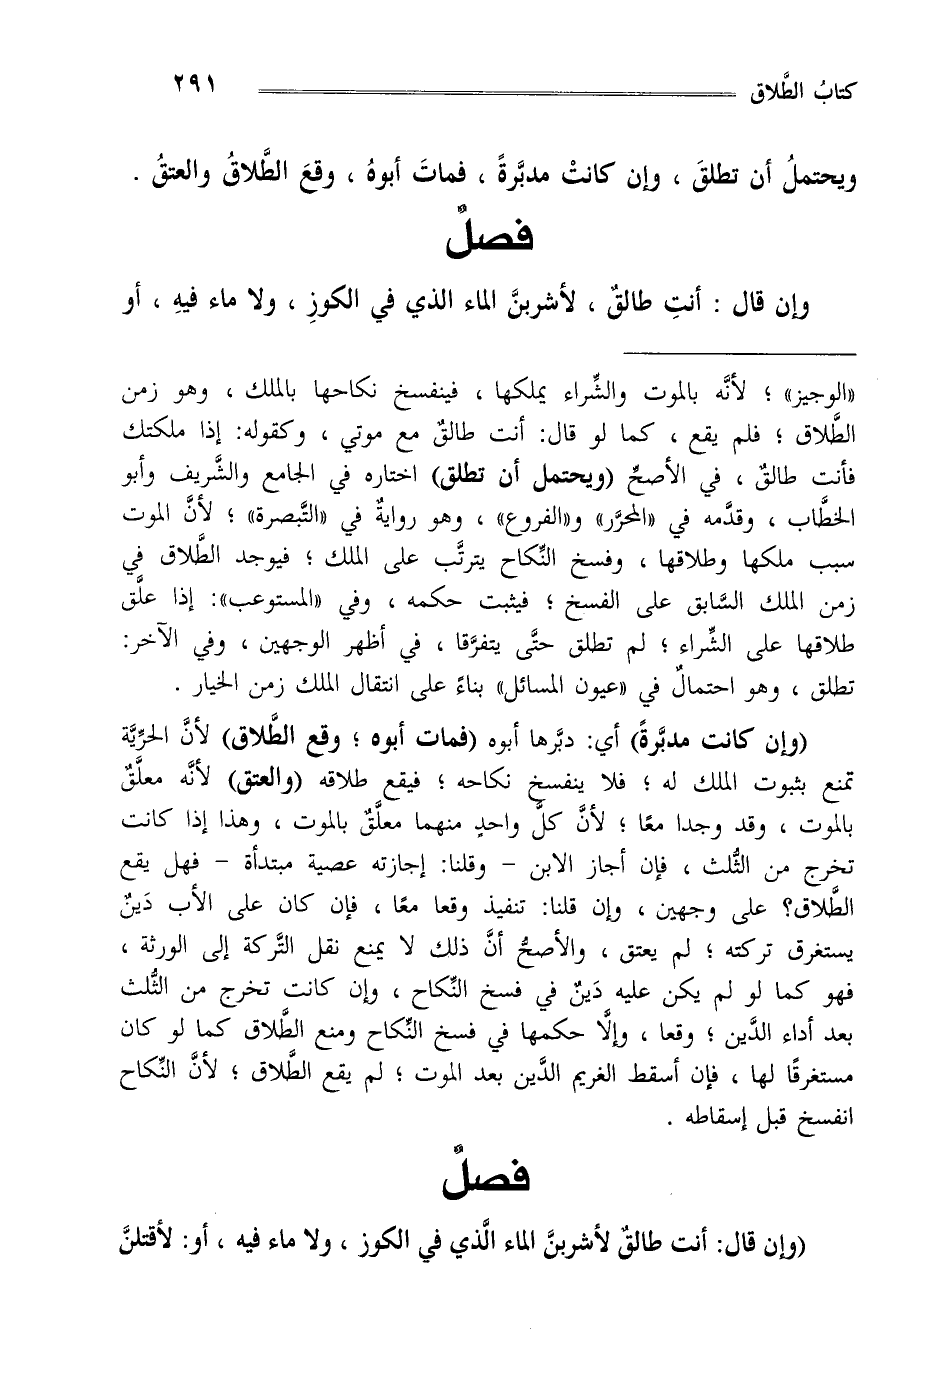 كتابُ الطَّلاق ٢٩١
ويحتملُ أن تطلقَ ، وإن كانتْ مدبَّرةً ، فماتَ أبوهُ ، وقعَ الطَّلاقُ والعتقُ .
فصلٌ
وإن قال : أنتِ طالقٌ ، لأشربنَّ الماء الذي في الكوزِ ، ولا ماء فيهِ ، أو
«الوجيز» ؛ لأنَّه بالموت والشِّراء يملكها ، فينفسخ نكاحها بالملك ، وهو زمن
الطَّلاق ؛ فلم يقع ، كما لو قال: أنت طالقٌ مع موتي ، وكقوله: إذا ملكتك
فأنت طالقٌ ، في الأصحِّ (ويحتمل أن تطلق) اختاره في الجامع والشَّريف وأبو
الخطَّاب ، وقدَّمه في «المحرَّر» و«الفروع» ، وهو روايةٌ في «التَّبصرة» ؛ لأنَّ الموت
سبب ملكها وطلاقها ، وفسخ النِّكاح يترتَّب على الملك ؛ فيوجد الطَّلاق في
زمن الملك السَّابق على الفسخ ؛ فيثبت حكمه ، وفي «المستوعب»: إذا علَّق
طلاقها على الشِّراء ؛ لم تطلق حتَّى يتفرَّقا ، في أظهر الوجهين ، وفي الآخر:
تطلق ، وهو احتمالٌ في «عيون المسائل» بناءً على انتقال الملك زمن الخيار .
(وإن كانت مدبَّرةً) أي: دبَّرها أبوه (فمات أبوه ؛ وقع الطَّلاق) لأنَّ الحرِّيَّة
تمنع بثبوت الملك له ؛ فلا ينفسخ نكاحه ؛ فيقع طلاقه (والعتق) لأنَّه معلَّقٌ
بالموت ، وقد وجدا معًا ؛ لأنَّ كلَّ واحدٍ منهما معلَّقٌ بالموت ، وهذا إذا كانت
تخرج من الثُّلث ، فإن أجاز الابن – وقلنا: إجازته عصية مبتدأة – فهل يقع
الطَّلاق؟ على وجهين ، وإن قلنا: تنفيذ وقعا معًا ، فإن كان على الأب دَينٌ
يستغرق تركته ؛ لم يعتق ، والأصحُّ أنَّ ذلك لا يمنع نقل التَّركة إلى الورثة ،
فهو كما لو لم يكن عليه دَينٌ في فسخ النِّكاح ، وإن كانت تخرج من الثُّلث
بعد أداء الدَّين ؛ وقعا ، وإلَّا حكمها في فسخ النِّكاح ومنع الطَّلاق كما لو كان
مستغرقًا لها ، فإن أسقط الغريم الدَّين بعد الموت ؛ لم يقع الطَّلاق ؛ لأنَّ النِّكاح
انفسخ قبل إسقاطه .
فصلٌ
(وإن قال: أنت طالقٌ لأشربنَّ الماء الَّذي في الكوز ، ولا ماء فيه ، أو: لأقتلنَّ